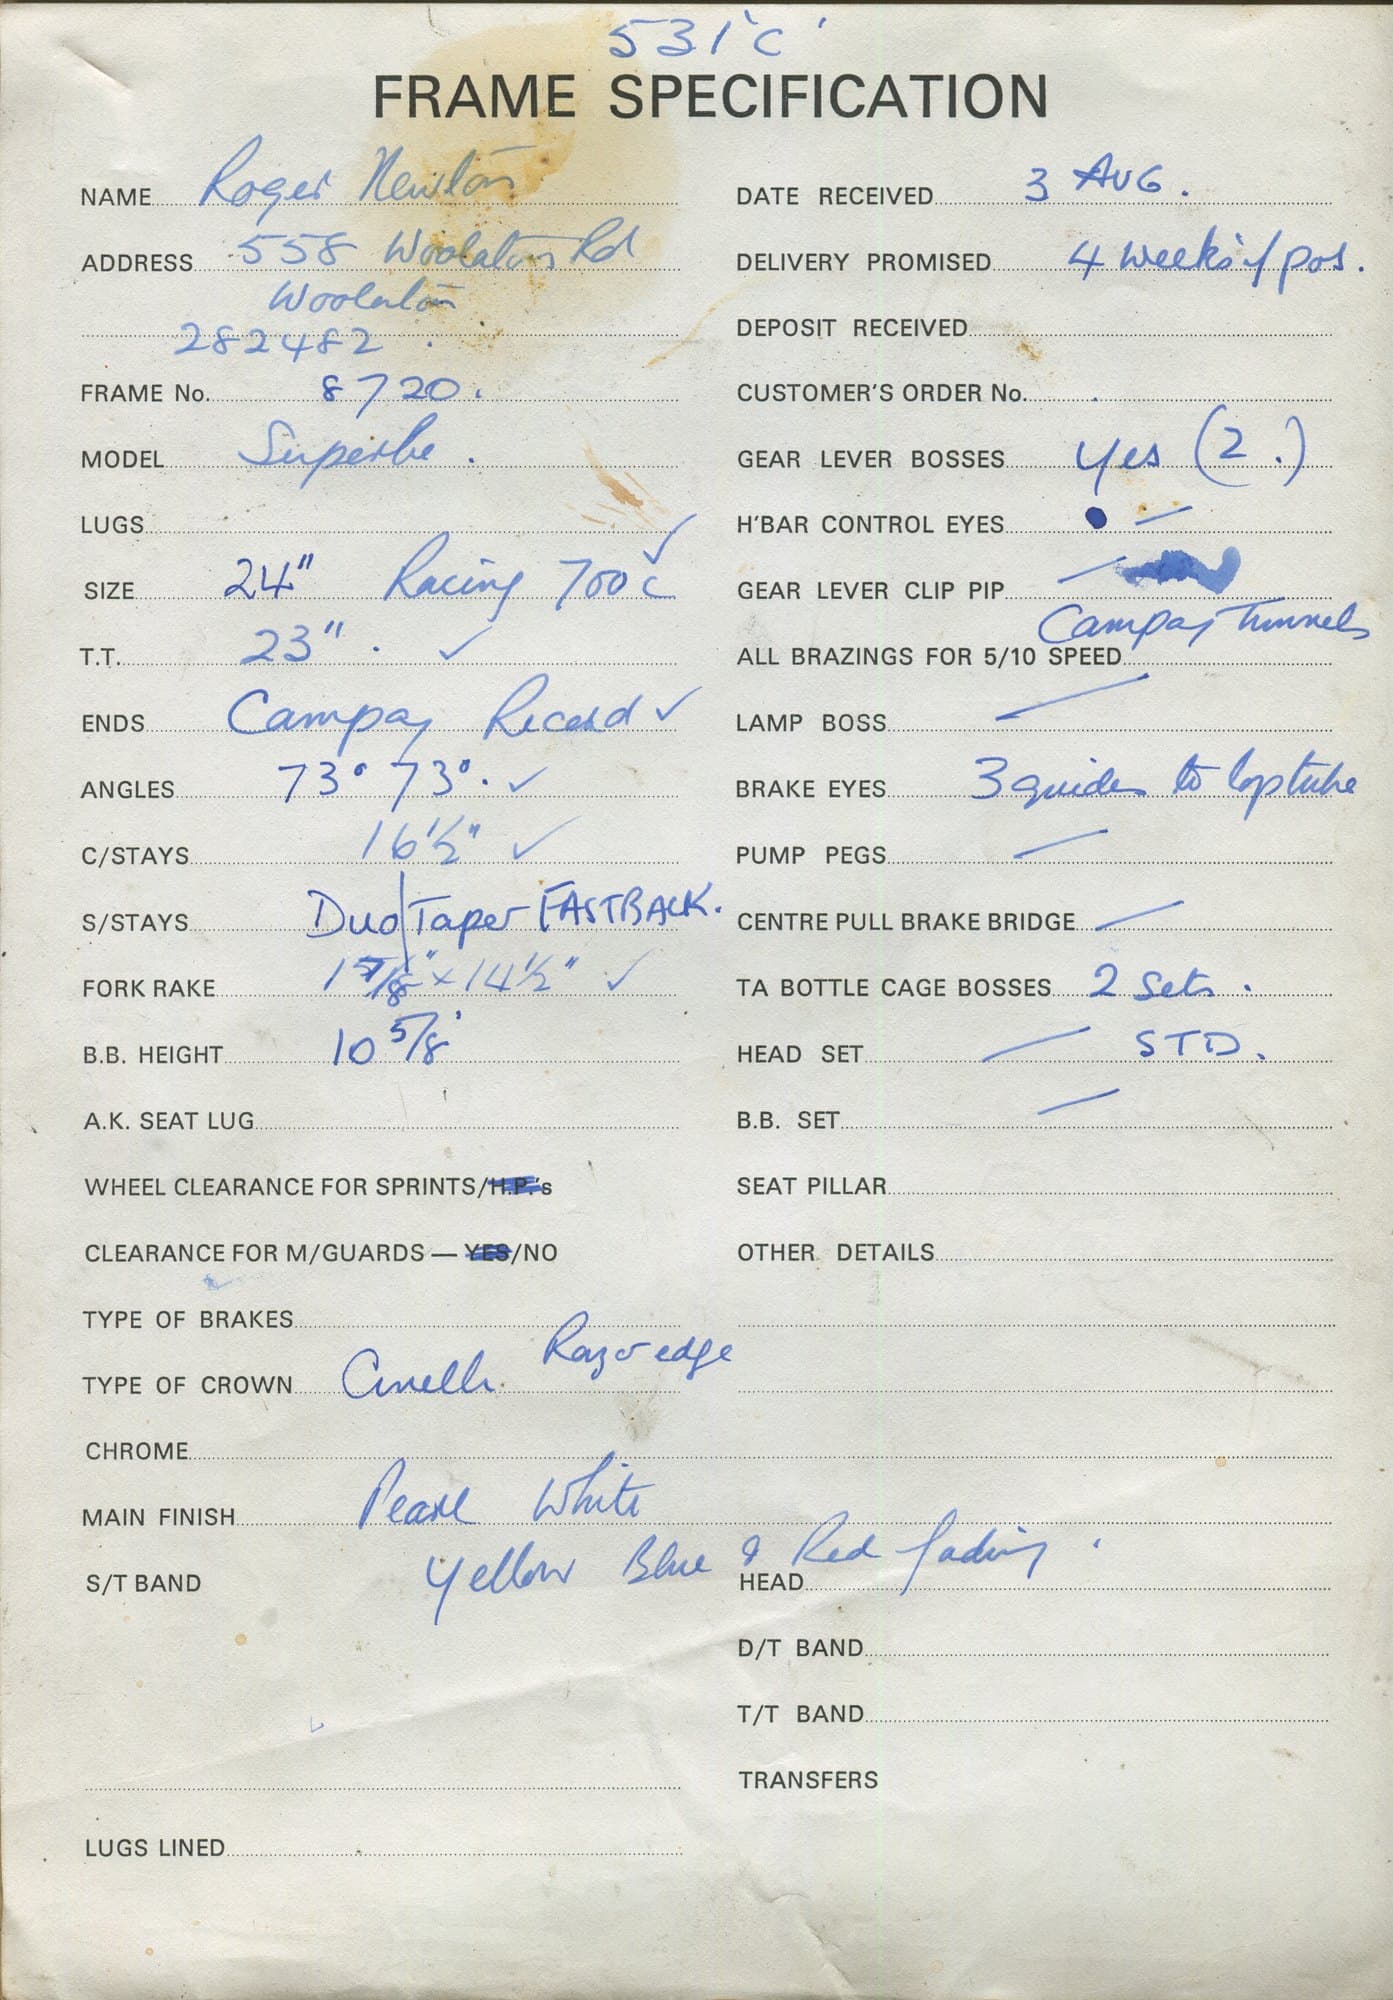 531 'C'
FRAME SPECIFICATION
NAME Roger Newton
ADDRESS 558 Woolaton Rd
Woolaton
282482.
FRAME No. 8720.
MODEL Superbe.
LUGS
SIZE 24" Racing 700c ✓
T.T. 23". ✓
ENDS Campag Record ✓
ANGLES 73° 73°. ✓
C/STAYS 16½" ✓
S/STAYS Duo/Taper FASTBACK.
FORK RAKE 1 7/8" x 14½" ✓
B.B. HEIGHT 10 5/8'
A.K. SEAT LUG
WHEEL CLEARANCE FOR SPRINTS/H.P.'s
CLEARANCE FOR M/GUARDS — YES/NO
TYPE OF BRAKES
Razor edge
TYPE OF CROWN Cinelli.
DATE RECEIVED 3 AUG.
DELIVERY PROMISED 4 weeks if pos.
DEPOSIT RECEIVED
CUSTOMER'S ORDER No.
GEAR LEVER BOSSES Yes (2.)
H'BAR CONTROL EYES —
GEAR LEVER CLIP PIP —
Campag Tunnels
ALL BRAZINGS FOR 5/10 SPEED
LAMP BOSS —
BRAKE EYES 3 guides to toptube
PUMP PEGS —
CENTRE PULL BRAKE BRIDGE —
TA BOTTLE CAGE BOSSES 2 Sets.
HEAD SET — STD.
B.B. SET —
SEAT PILLAR
OTHER DETAILS
CHROME
MAIN FINISH Pearl White
Yellow Blue & Red fading.
S/T BAND
HEAD
D/T BAND
T/T BAND
TRANSFERS
LUGS LINED